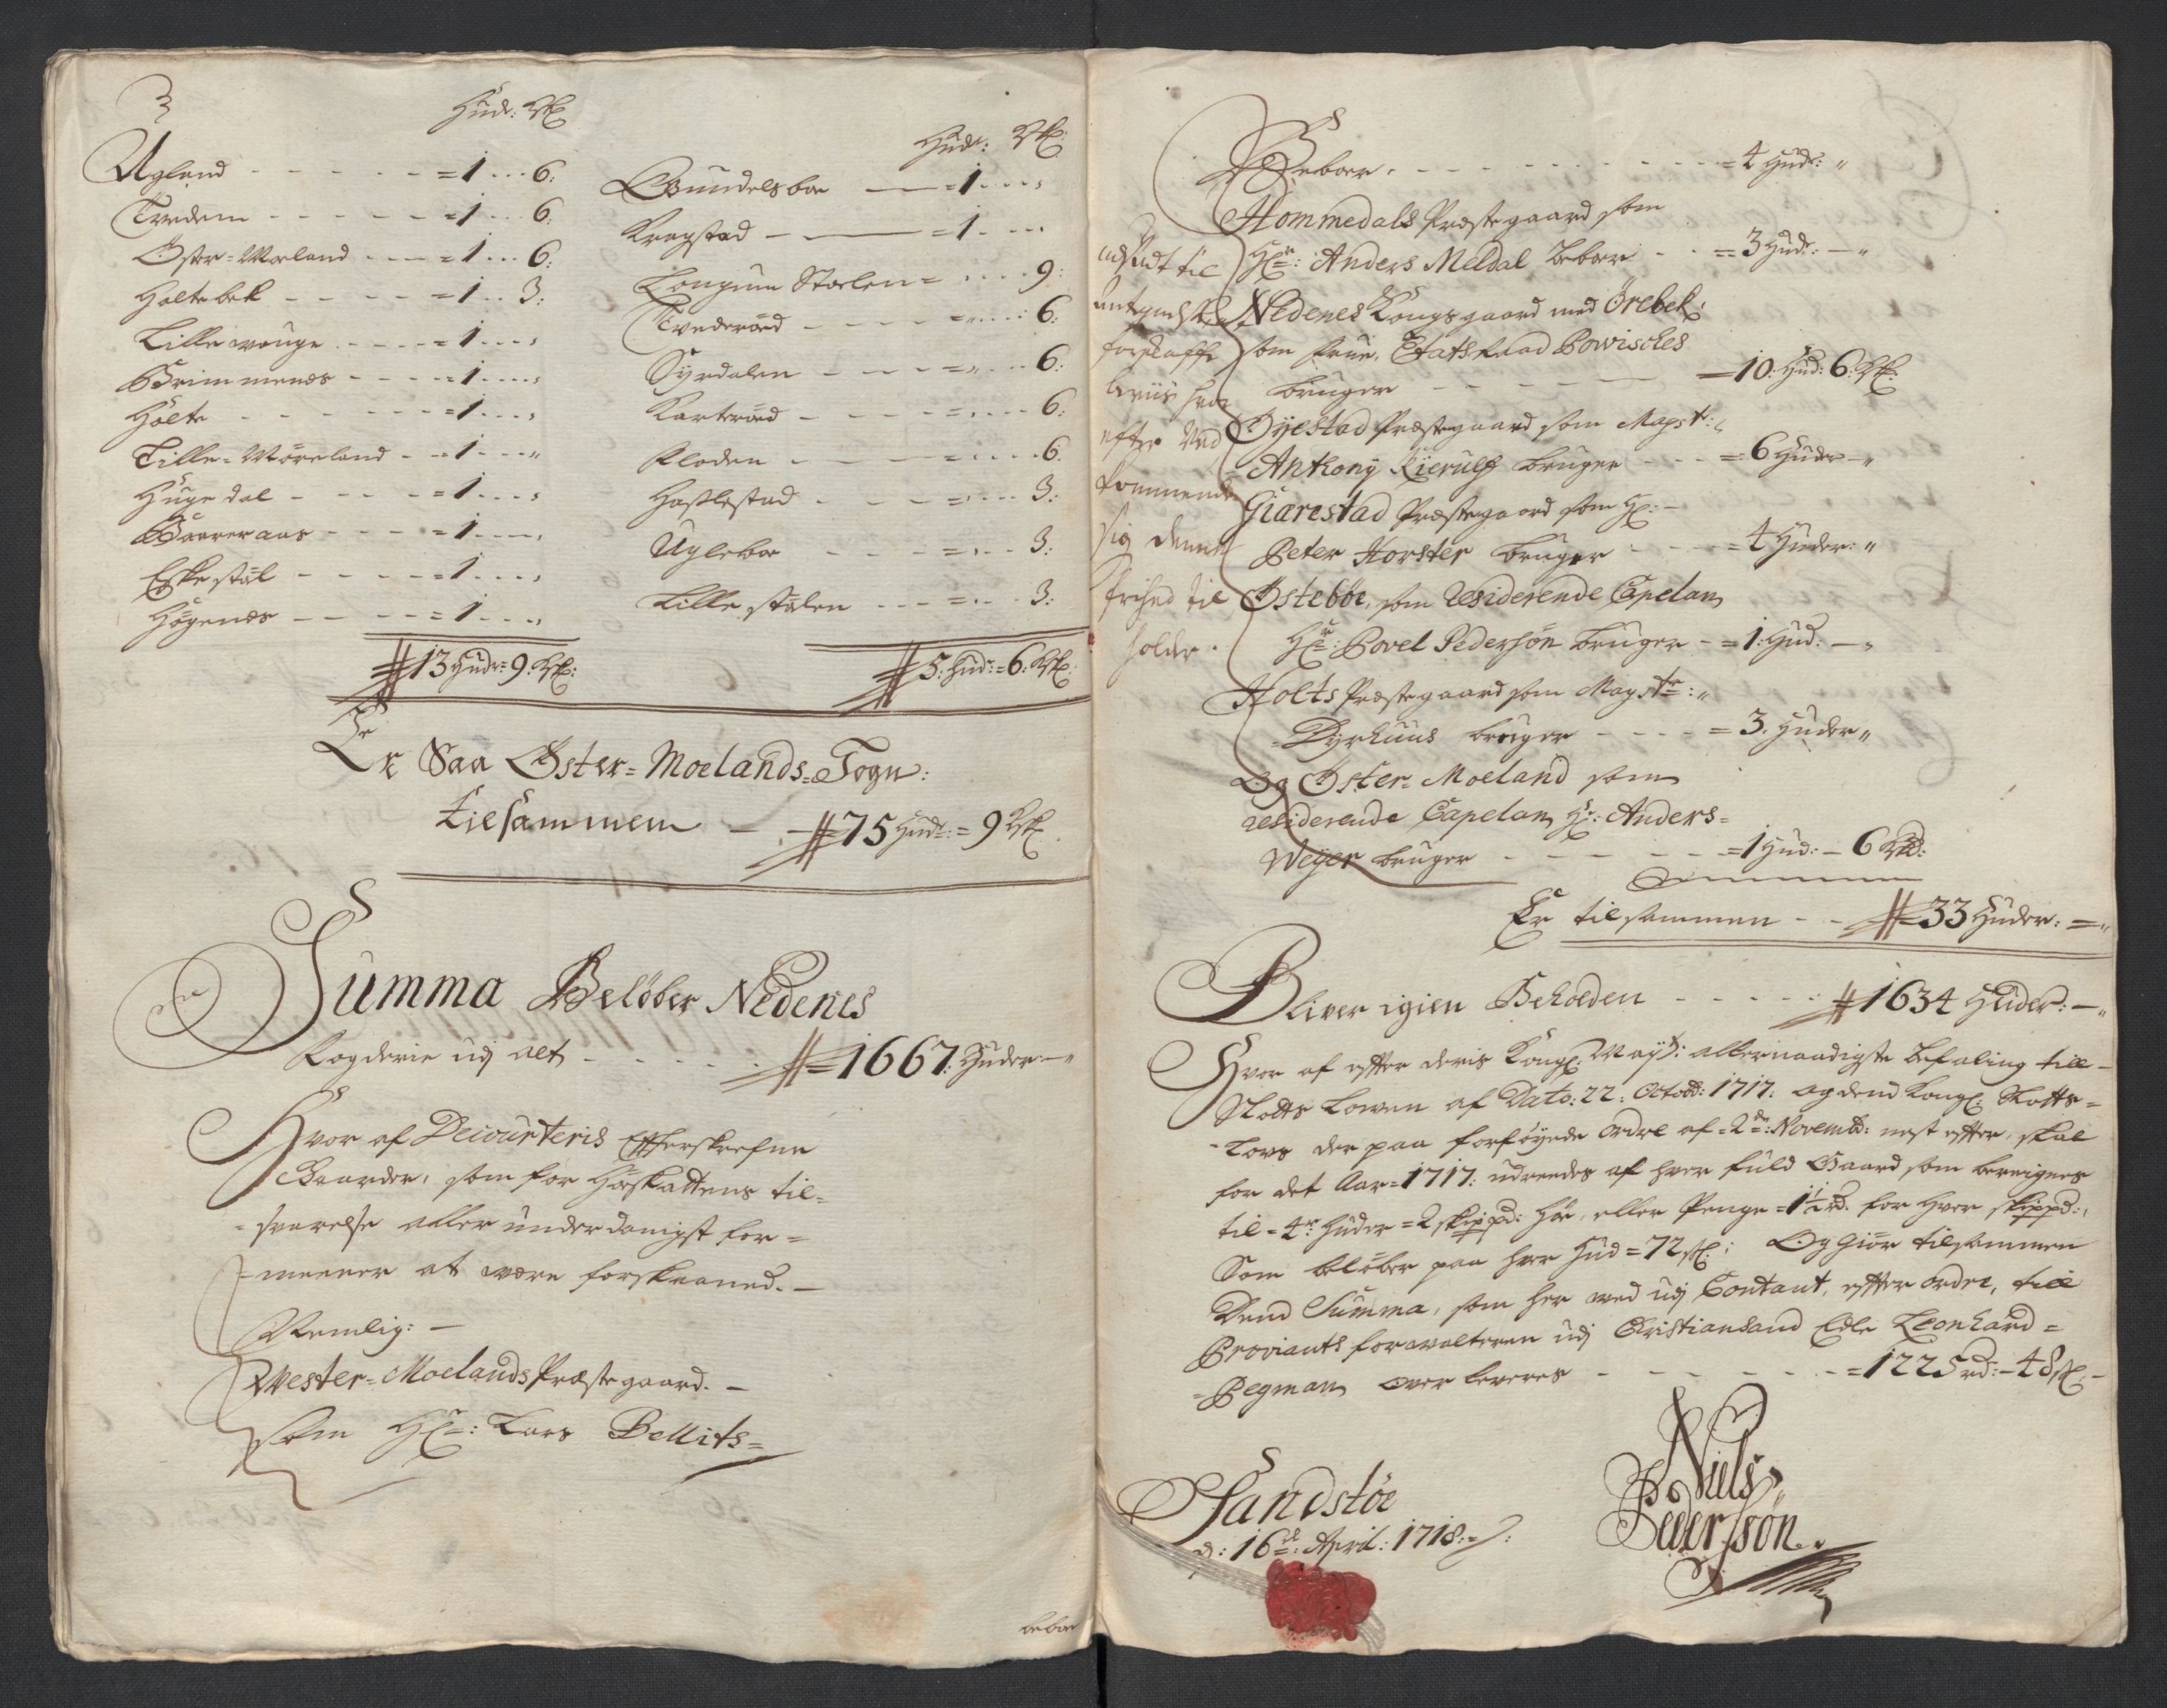 Hud: Skl
Ugland - - - - - =1 ... 6:
Tvedem - - - - - =1 ... 6
Öster=Moeland - - - =1 ... 6:
Holtebek - - - - =1 .. 3:
Lille wouge - - - - =1 ....
Grimmenes - - - - =1 ....
Holte - - - - - =1 ....
Lille=Möreland - - =1 ....
Hugedal - - - - =1 ....
Gaareraas - - - =1 ....
Eskestöl - - - - =1 ....
Högenes - - - - =1 ....
13 Hudr=9. Skl:
Hud: Skl:
Gundelsboe =1 ....
Kragstad =1. ...
Longum Stoelen= .... 9:
Tvederöed - - - - =.... 6:
Syrdalen - - - - =.... 6:
Karteröed - - - - =.... 6:
Kloden - - - =.... 6
Haslestad - - - =.... 3:
Ugleboe - - - =... 3:
Lille stölen - - - =... 3:
5. Hud:=6. Skl:
Er Saa Öster=Moelands=Sogn:
tilsammen - - 75 Hudr:=9 Skl.
Summa Belöber Nedenes
Fogderie udj alt - - - - 1667. Huder -
Hvor af Decourteris Effterskrefne
Gaarder, som for Höeskattens til=
=svarelse aller underdanigst for=
=meener at være forskaaned. -
Nemlig: -
Wester=Moelands Præstegaard. -
som Hr: Lars Bellits=
beboe
Beboer. - - - - - - - =4 Hudr: "
Hommedals Præstegaard som
Hr: Anders Meldal beboer - - =3 Hudr: - "
Nedenes Kongsgaard med Örebek,
som frue, Etats Raad Povisches
bruger - - - =10. Hud: 6. Skl:
Öyestad Præstegaard som Magstr:
Anthony Kierulf bruger - - - =6 Huder - "
Giærestad Præstegaard som Hr: -
Peter Horster bruger - - - =4 Huder: "
Östeböe, som Residerende Capelan
Hr: Povel Pedersön bruger - =1. Hud: -
Holts Præstegaard som Magstr: "
=Dyrhuus bruger - - - - =3. Huder "
Og Öster=Moeland som
residerende Capelan Hr: Anders=
Weyer bruger - - - - - =1 Hud: - 6 Skl:
udstædt til
forskaffe
beviis hvor
efter Ved
kommende
sig denne
frihed til
holder.
Er tilsammen - - 33 Huder: =
Bliver igien Beholden - - - - - 1634 Huder: -
Hvor af effter deris Kongl: Mayts: allernaadigste befaling till
Slotts Lowen af Dato: 22: Octobr: 1717. og dend Kongl: Slotts=
=Lovs der paa forföyede ordre af=2de: Novembr: nest effter, skal
for det Aar=1717: udreedes af hver fuld Gaard som bereignes
til=4re Huder=2 skippd: Höe, eller Penge=1½ rd. for hver skippd:,
Som belöber paa hver Hud=72 sk: Og Giör tilsammen
Dend Summa, som her med udj Contant, effter ordre, till
Proviants forvalteren udj Christiansand Edle Leonhard=
=Pegman over leveres - - - - - =1225 rd: - 48 sk: -
Sandstöe
d: 16de: April: 1718:
Niels
Pedersön.